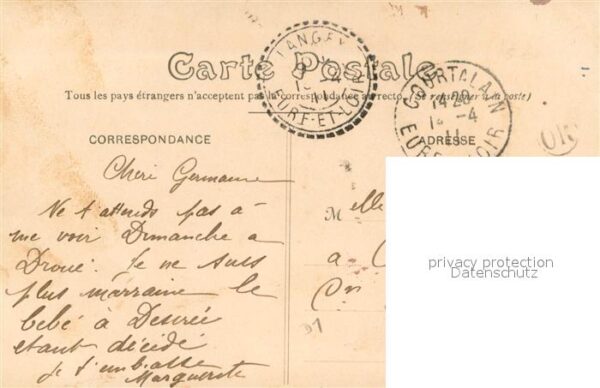 Carte Postale
Tous les pays étrangers n'acceptent pas la correspondance au recto. (Se renseigner à la poste)
LANGEY
EURE-ET-LOIR
COURTALAIN
14 20
14 -4
11
EURE LOIR
OR
CORRESPONDANCE
ADRESSE
Cheri Germaine
Ne t'attends pas à
me voir Dimanche a
Droué. Je ne suis
plus marraine le
bebé à Desirée
etant décédé
Je t'embrasse
Marguerite
Melle
a C
Con
privacy protection
Datenschutz